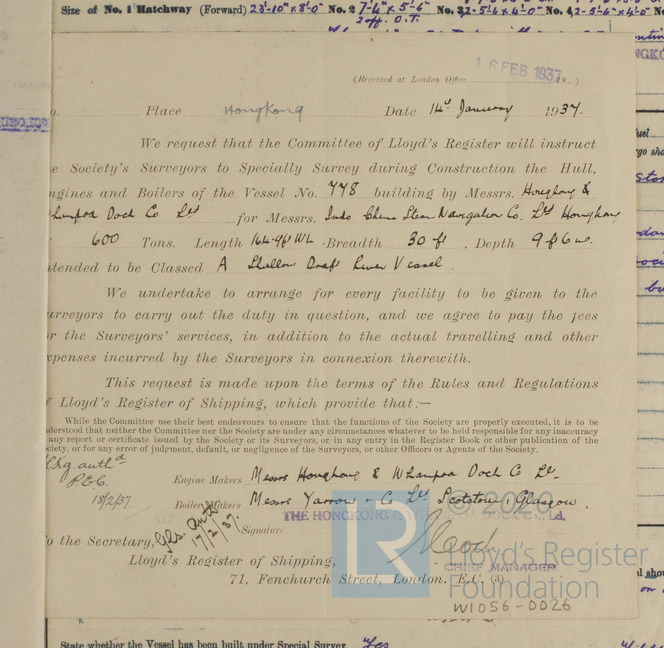 Size of No. 1 Hatchway (Forward) 23'-10" x 8'-0" No. 2 7-4" x 5'-6" No. 3 2-5'6 x 4'-0" No. 4 2-5'-6" x 4'-0" No
2 off. O.T.
16 FEB 1937
(Received at London Office 19 )
o. Place Hongkong Date 14th January 1937.
We request that the Committee of Lloyd's Register will instruct
e Society's Surveyors to Specially Survey during Construction the Hull,
ngines and Boilers of the Vessel No. 778 building by Messrs. Hongkong &
Whampoa Dock Co Ltd for Messrs. Indo China Steam Navigation Co. Ltd Hongkong
600 Tons. Length 164-9ft WL Breadth 30 ft, Depth 9 ft 6 in.
ntended to be Classed A Shallow Draft River Vessel.
We undertake to arrange for every facility to be given to the
urveyors to carry out the duty in question, and we agree to pay the fees
r the Surveyors' services, in addition to the actual travelling and other
xpenses incurred by the Surveyors in connexion therewith.
This request is made upon the terms of the Rules and Regulations
f Lloyd's Register of Shipping, which provide that:—
While the Committee use their best endeavours to ensure that the functions of the Society are properly executed, it is to be
nderstood that neither the Committee nor the Society are under any circumstances whatever to be held responsible for any inaccuracy
any report or certificate issued by the Society or its Surveyors, or in any entry in the Register Book or other publication of the
ciety, or for any error of judgment, default, or negligence of the Surveyors, or other Officers or Agents of the Society.
authd
18/2/37.
Engine Makers Messrs Hongkong & Whampoa Dock Co Ld.
Boiler Makers Messrs Yarrow & Co Ld Scotstoun Glasgow.
THE HONGKONG & DOCK CO., Ld.
Gls. Auth
17/2/37.
Signature
o the Secretary,
CHIEF MANAGER
Lloyd's Register of Shipping,
71, Fenchurch Street, London. E.C. (3)
LR
© 2020
Lloyd's Register
Foundation
W1056-0026
State whether the Vessel has been built under Special Survey Yes